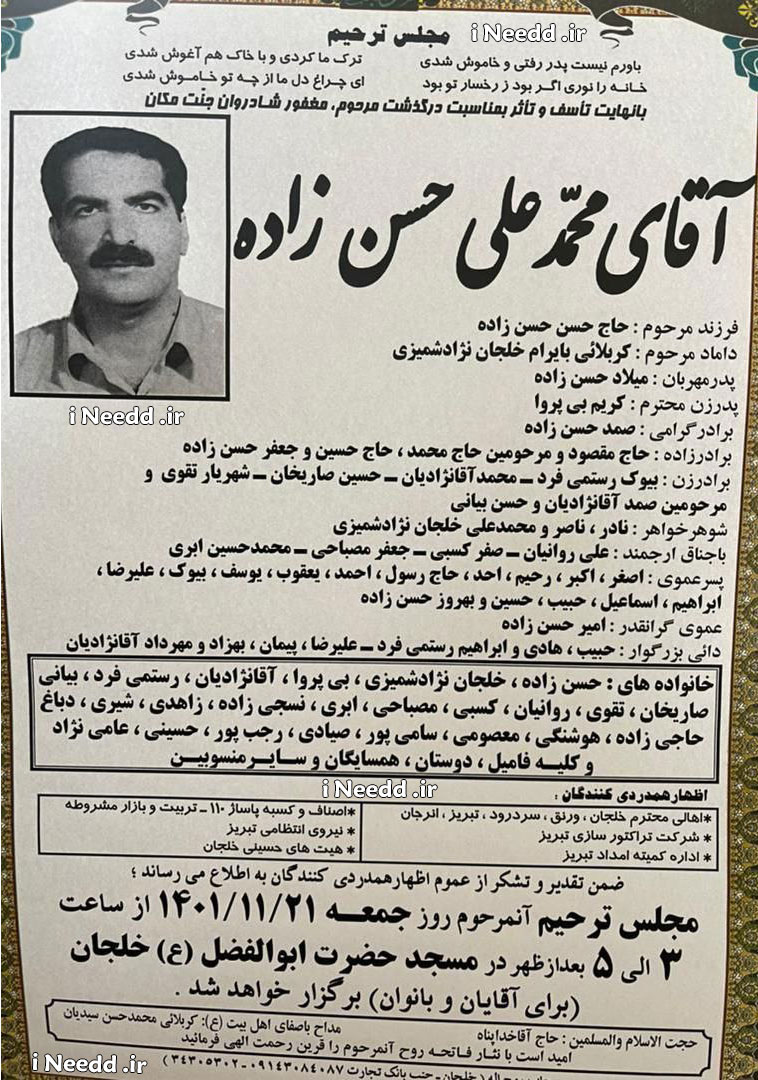 i Needd .ir
مجلس ترحیم
باورم نیست پدر رفتی و خاموش شدی ترک ما کردی و با خاک هم آغوش شدی
خانه را نوری اگر بود ز رخسار تو بود ای چراغ دل ما از چه تو خاموش شدی
بانهایت تأسف و تأثر بمناسبت درگذشت مرحوم، مغفور شادروان جنّت مکان
آقای محمّد علی حسن زاده
فرزند مرحوم : حاج حسن حسن زاده
داماد مرحوم : کربلائی بایرام خلجان نژادشمیزی
پدرمهربان : میلاد حسن زاده
پدرزن محترم : کریم بی پروا
i Needd .ir
برادرگرامی : صمد حسن زاده
برادرزاده : حاج مقصود و مرحومین حاج محمد ، حاج حسین و جعفر حسن زاده
برادرزن : بیوک رستمی فرد ــ محمدآقانژادیان ــ حسین صاریخان ــ شهریار تقوی و
مرحومین صمد آقانژادیان و حسن بیانی
شوهرخواهر : نادر ، ناصر و محمدعلی خلجان نژادشمیزی
باجناق ارجمند : علی روانیان ــ صفر کسبی ــ جعفر مصباحی ــ محمدحسین ابری
پسرعموی : اصغر ، اکبر ، رحیم ، احد ، حاج رسول ، احمد ، یعقوب ، یوسف ، بیوک ، علیرضا ،
ابراهیم ، اسماعیل ، حبیب ، حسین و بهروز حسن زاده
عموی گرانقدر : امیر حسن زاده
دائی بزرگوار : حبیب ، هادی و ابراهیم رستمی فرد ــ علیرضا ، پیمان ، بهزاد و مهرداد آقانژادیان
خانواده های : حسن زاده ، خلجان نژادشمیزی ، بی پروا ، آقانژادیان ، رستمی فرد ، بیانی
صاریخان ، تقوی ، روانیان ، کسبی ، مصباحی ، ابری ، نسجی زاده ، زاهدی ، شیری ، دباغ
حاجی زاده ، هوشنگی ، معصومی ، سامی پور ، صیادی ، رجب پور ، حسینی ، عامی نژاد
و کلیه فامیل ، دوستان ، همسایگان و سایرمنسوبین
i Needd .ir
اظهارهمدردی کنندگان :
*اهالی محترم خلجان ، ورنق ، سردرود ، تبریز ، انرجان
* شرکت تراکتور سازی تبریز
* اداره کمیته امداد تبریز
*اصناف و کسبه پاساژ ۱۱۰ ــ تربیت و بازار مشروطه
* نیروی انتظامی تبریز
* هیت های حسینی خلجان
ضمن تقدیر و تشکر از عموم اظهارهمدردی کنندگان به اطلاع می رساند ؛
مجلس ترحیم آنمرحوم روز جمعه ۱۴۰۱/۱۱/۲۱ از ساعت
۳ الی ۵ بعدازظهر در مسجد حضرت ابوالفضل (ع) خلجان
(برای آقایان و بانوان) برگزار خواهد شد .
حجت الاسلام والمسلمین : حاج آقاخداپناه مداح باصفای اهل بیت (ع): کربلائی محمدحسن سیدیان
امید است با نثار فاتحه روح آنمرحوم را قرین رحمت الهی فرمائید
خلجان - جنب بانک تجارت ۰۹۱۴۳۰۸۴۰۸۷-۳۴۳۰۵۳۰۲ )
i Needd .ir